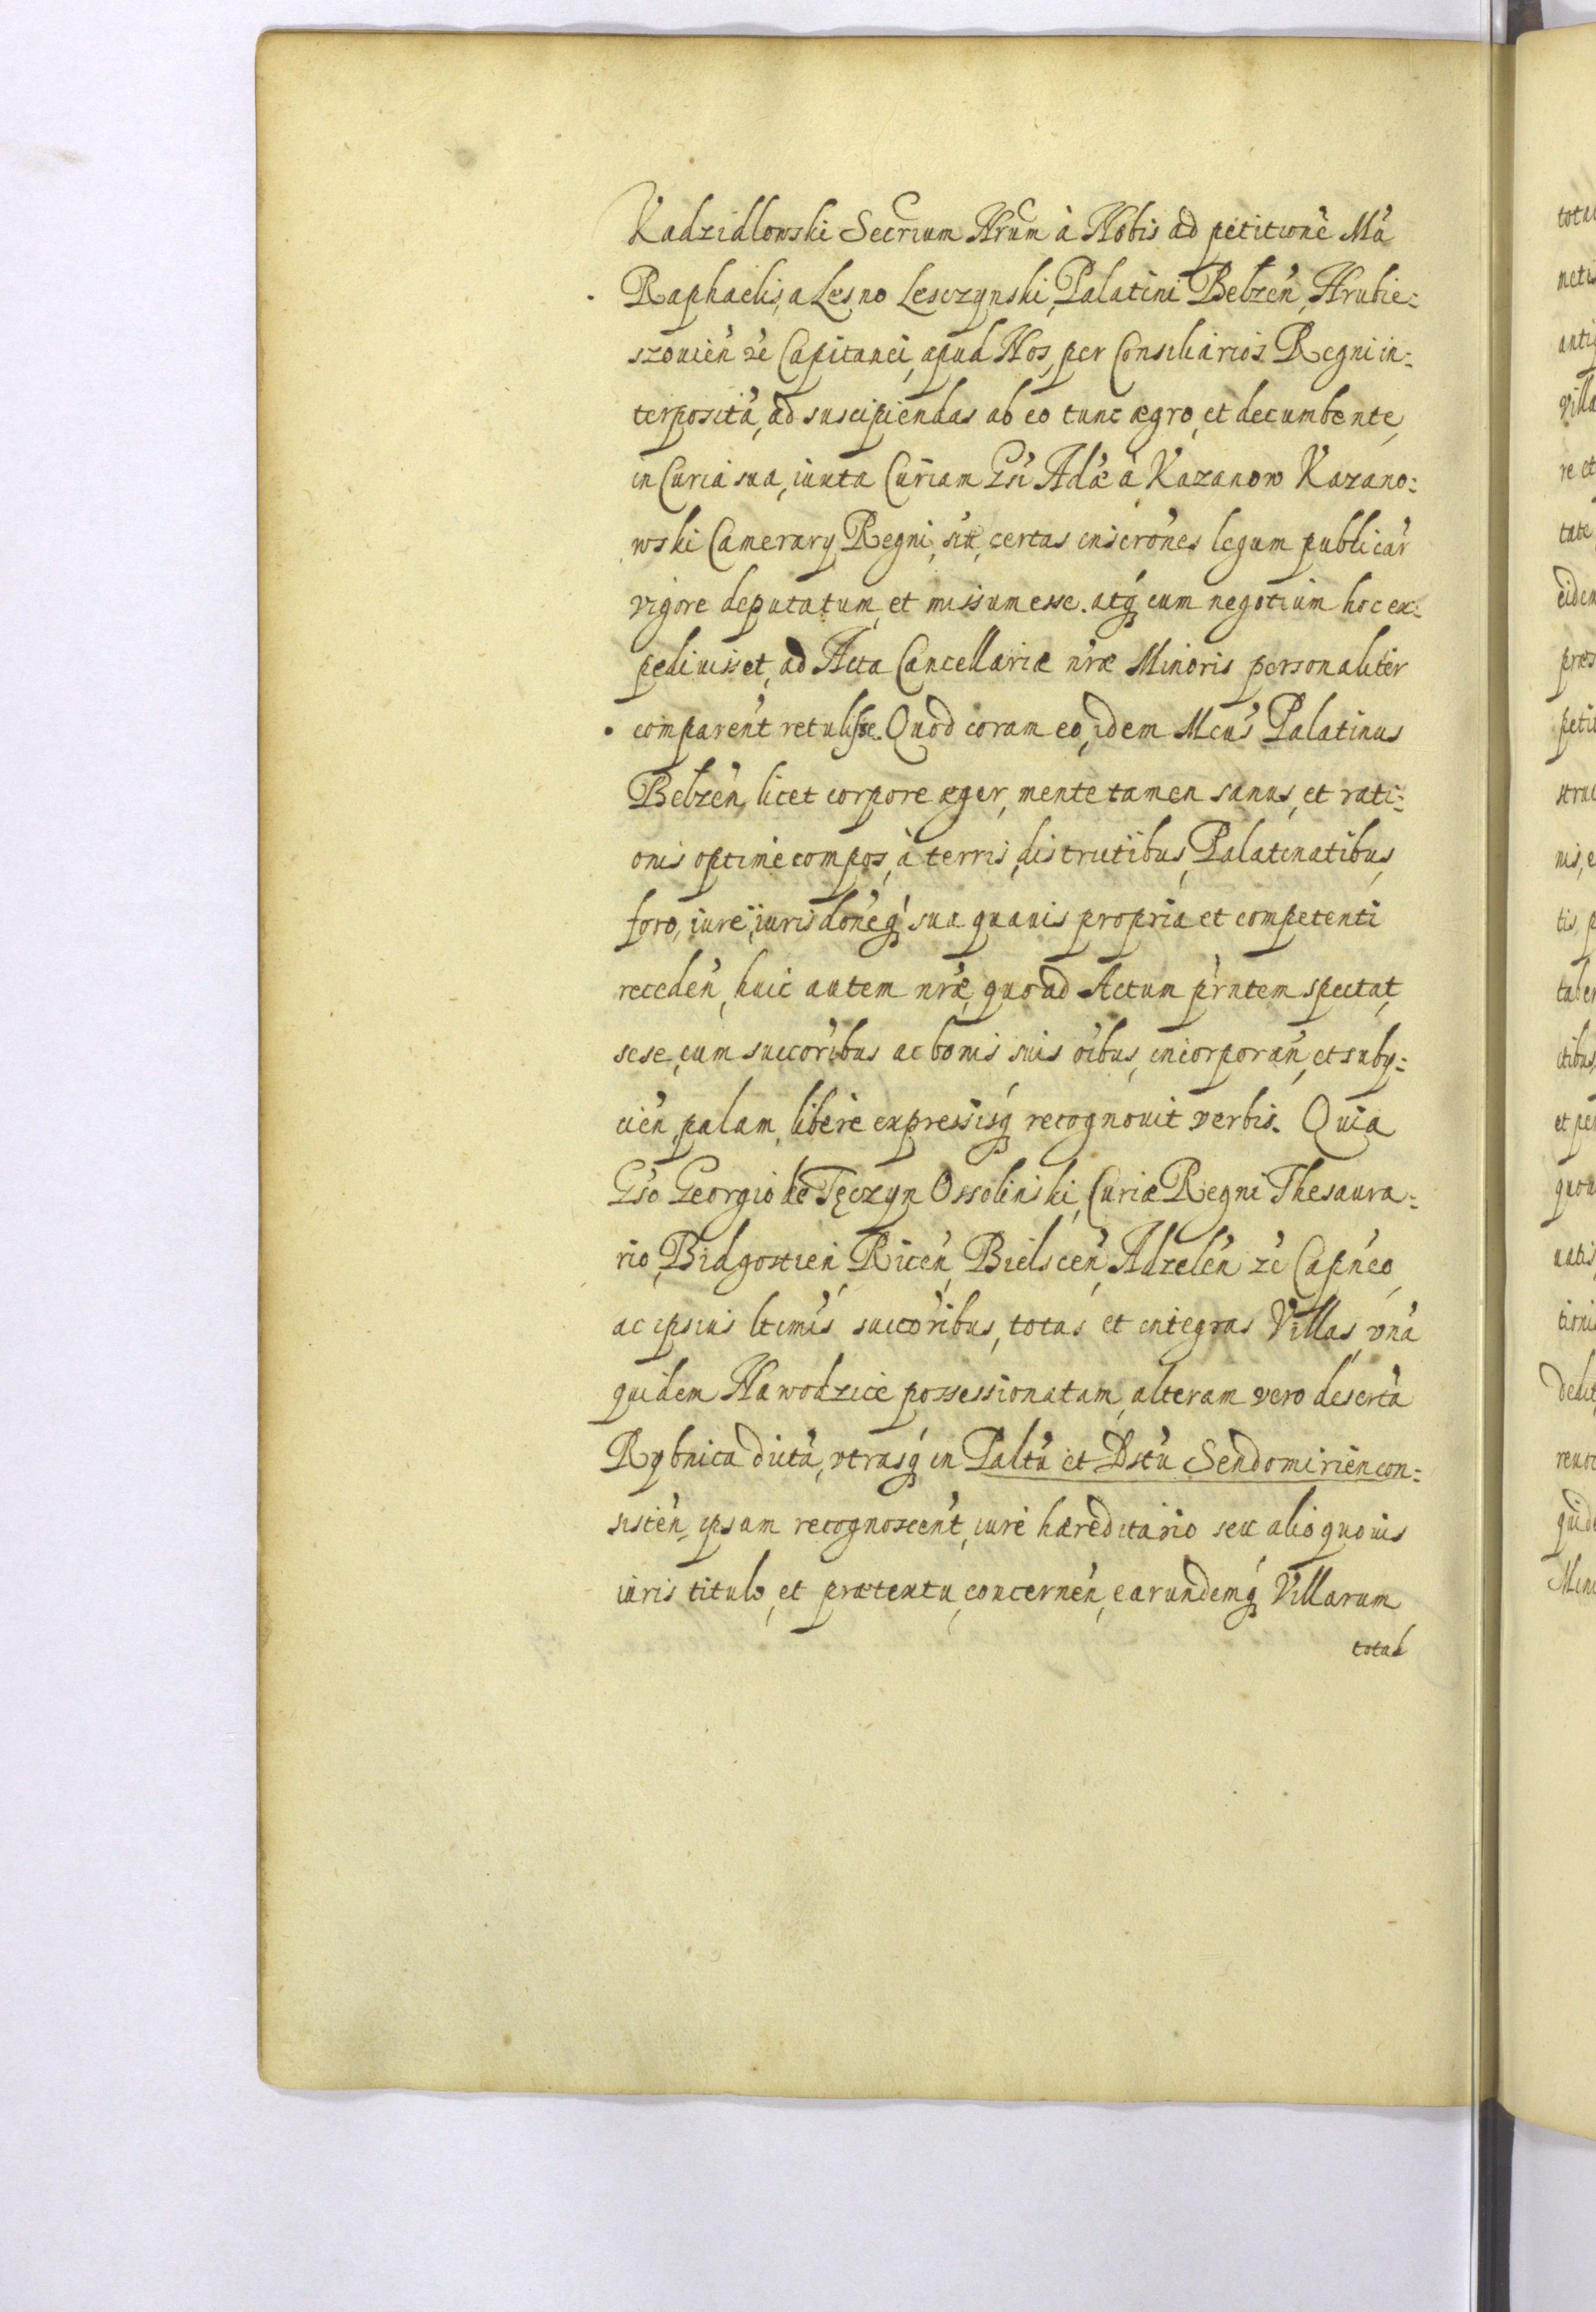 Kadzidlowski Secrium Nrum à Nobis ad petitione Má
Raphaelis, a Lesno Lesczynski, Palatini Belzen, Hrubie=
szouien ze Capitanei, apud Nos, per Consiliarios Regni in=
terposita, ad suscipiendas ab eo tunc ægro, et decumbente,
in Curia sua, iuxta Curiam Gsi Adæ à Kazanow Kazano=
wski Camerarij Regni, sitt, certas inscrones legum publicar
vigore deputatum, et missum esse. atq cum negotium hoc ex=
pediuisset, ad Acta Cancellariæ nræ Minoris personaliter
comparent retulisse. Quod coram eo, idem Mcus Palatinus
Belzen, licet corpore æger, mente tamen sanus, et rati=
onis optime compos, à terris, districtibus, Palatinatibus,
foro, iure, iurisdoneq sua quauis propria et competenti
receden, huic autem nræ, quoad Actum prntem spectat,
sese, cum succoribus ac bonis suis oibus, incorporan, et subij=
cien, palam, libere expressisq recognouit verbis. Quia
Gso Georgio de Tęczyn Ossolinski, Curiæ Regni Thesaura=
rio, Bidgostien, Ricen, Bielscen, Adzelen ze Capneo
ac ipsius ltimis succoribus, totas et integras Villas, vna
quidem Nawodzice possessionatam, alteram vero deserta
Rybnica dicta, vtrasq in Paltu et Dstu Sendomirien con=
sisten, ipsum recognoscent, iure hæreditario seu alio quouis
iuris titulo, et prætextu, concernen, earundemq Villarum
total